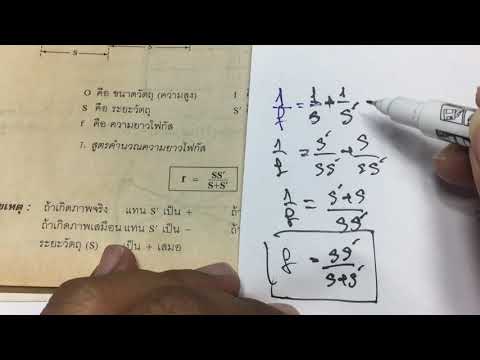 S
S'
O คือ ขนาดวัตถุ (ความสูง)
S คือ ระยะวัตถุ S'
f คือ ความยาวโฟกัส
1. สูตรคำนวณความยาวโฟกัส
f = SS' / S+S'
ยเหตุ : ถ้าเกิดภาพจริง แทน S' เป็น + ถ้
ถ้าเกิดภาพเสมือน แทน S' เป็น − ถ้
ระยะวัตถุ (S) เป็น + เสมอ
1/f = 1/s + 1/s'
1/f = s'/ss' + s/ss'
1/f = s'+s / ss'
f = ss' / s+s'